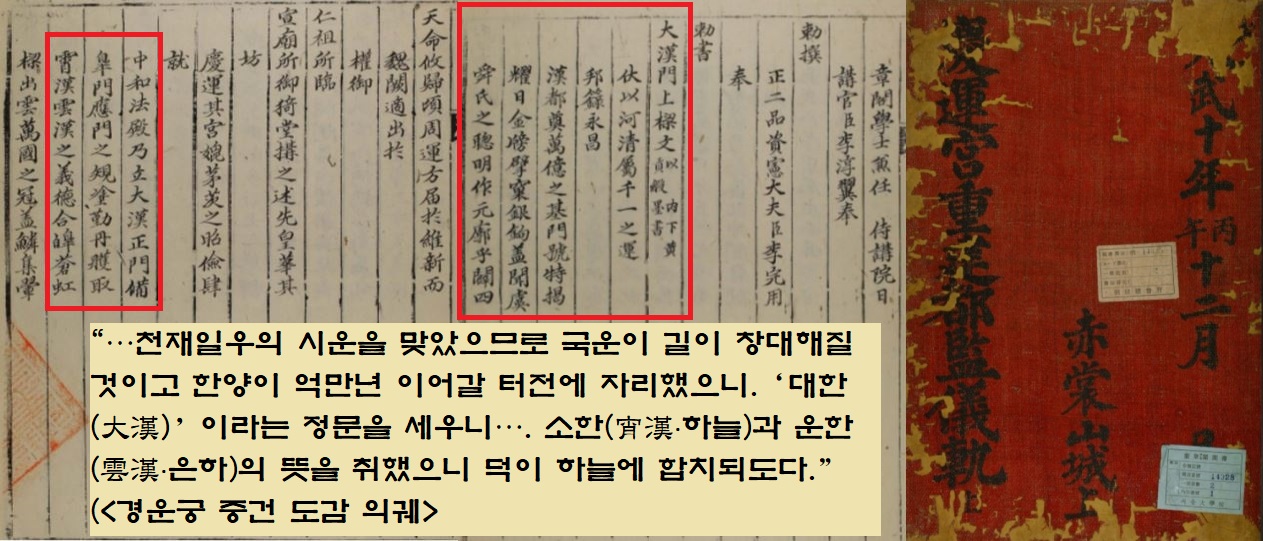 武十年丙午十二月
赤裳山城上
慶運宮重建都監儀軌上
章閣學士兼任 侍講院日
講官臣李淳翼奉
勅撰
正二品資憲大夫臣李完用
奉
勅書
大漢門上樑文 以內下黃貞緞墨書
伏以河清屬千一之運
邦籙永昌
漢都奠萬億之基門號特揭
耀日金牓擘窠銀鉤蓋聞虞
舜氏之聰明作元廓乎闢四
天命攸歸頃周運方届於維新而
魏闕適出於
權御
仁祖所臨
宣廟所御猗堂搆之述先皇華其
坊
慶運其宮媲茅茨之昭儉肆
就
中和法殿乃立大漢正門備
皐門應門之規塗勤丹雘取
霄漢雲漢之義德合皞蒼虹
樑出雲萬國之冠蓋鱗集翬
“…천재일우의 시운을 맞았으므로 국운이 길이 창대해질
것이고 한양이 억만년 이어갈 터전에 자리했으니. ‘대한
(大漢)’ 이라는 정문을 세우니…. 소한(宵漢·하늘)과 운한
(雲漢·은하)의 뜻을 취했으니 덕이 하늘에 합치되도다.”
(<경운궁 중건 도감 의궤>